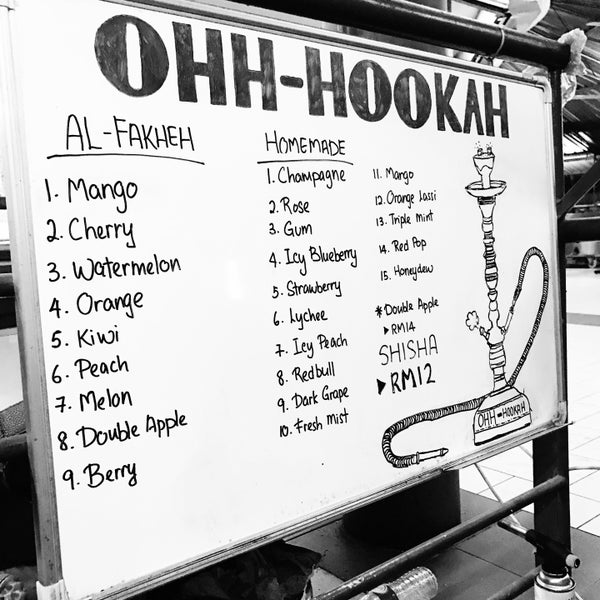 OHH-HOOKAH
AL-FAKHEH
1. Mango
2. Cherry
3. Watermelon
4. Orange
5. Kiwi
6. Peach
7. Melon
8. Double Apple
9. Berry
HOMEMADE
1. Champagne
2. Rose
3. Gum
4. Icy Blueberry
5. Strawberry
6. Lychee
7. Icy Peach
8. Redbull
9. Dark Grape
10. Fresh Mist
11. Margo
12. Orange Lassi
13. Triple Mint
14. Red Pop
15. Honeydew
*Double Apple
▶RM14
SHISHA
▶RM12
OHH-HOOKAH